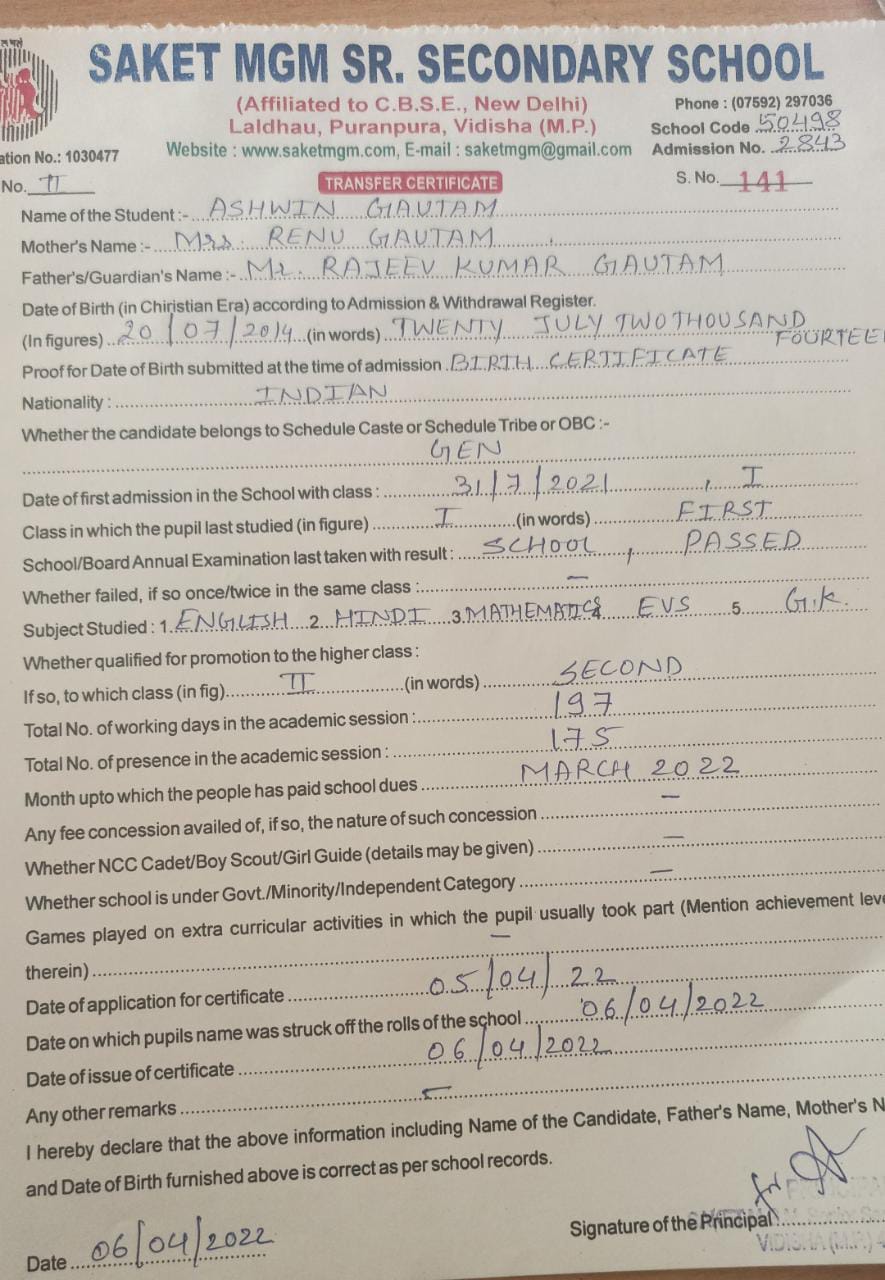 SAKET MGM SR. SECONDARY SCHOOL
(Affiliated to C.B.S.E., New Delhi)
Laldhau, Puranpura, Vidisha (M.P.)
Website : www.saketmgm.com, E-mail : saketmgm@gmail.com
Phone : (07592) 297036
School Code 50498
ation No.: 1030477
Admission No. 2843
No. II
TRANSFER CERTIFICATE
S. No. 141
Name of the Student :- ASHWIN GAUTAM
Mother's Name :- Mrs. RENU GAUTAM
Father's/Guardian's Name :- Mr. RAJEEV KUMAR GAUTAM
Date of Birth (in Chiristian Era) according to Admission & Withdrawal Register.
(In figures) 20/07/2014 (in words) TWENTY JULY TWO THOUSAND
FOURTEE
Proof for Date of Birth submitted at the time of admission BIRTH CERTIFICATE
Nationality : INDIAN
Whether the candidate belongs to Schedule Caste or Schedule Tribe or OBC :-
GEN
Date of first admission in the School with class : 31/7/2021, I
Class in which the pupil last studied (in figure) I (in words) FIRST
School/Board Annual Examination last taken with result : SCHOOL, PASSED
Whether failed, if so once/twice in the same class : —
Subject Studied : 1. ENGLISH 2. HINDI 3. MATHEMATICS 4. EVS 5. G.K.
Whether qualified for promotion to the higher class :
If so, to which class (in fig) II (in words) SECOND
Total No. of working days in the academic session : 197
Total No. of presence in the academic session : 175
Month upto which the people has paid school dues MARCH 2022
Any fee concession availed of, if so, the nature of such concession —
Whether NCC Cadet/Boy Scout/Girl Guide (details may be given) —
Whether school is under Govt./Minority/Independent Category —
Games played on extra curricular activities in which the pupil usually took part (Mention achievement leve
therein) —
Date of application for certificate 05/04/22
Date on which pupils name was struck off the rolls of the school 06/04/2022
Date of issue of certificate 06/04/2022
Any other remarks —
I hereby declare that the above information including Name of the Candidate, Father's Name, Mother's N
and Date of Birth furnished above is correct as per school records.
Signature of the Principal
VIDISHA (M.P.)
Date 06/04/2022